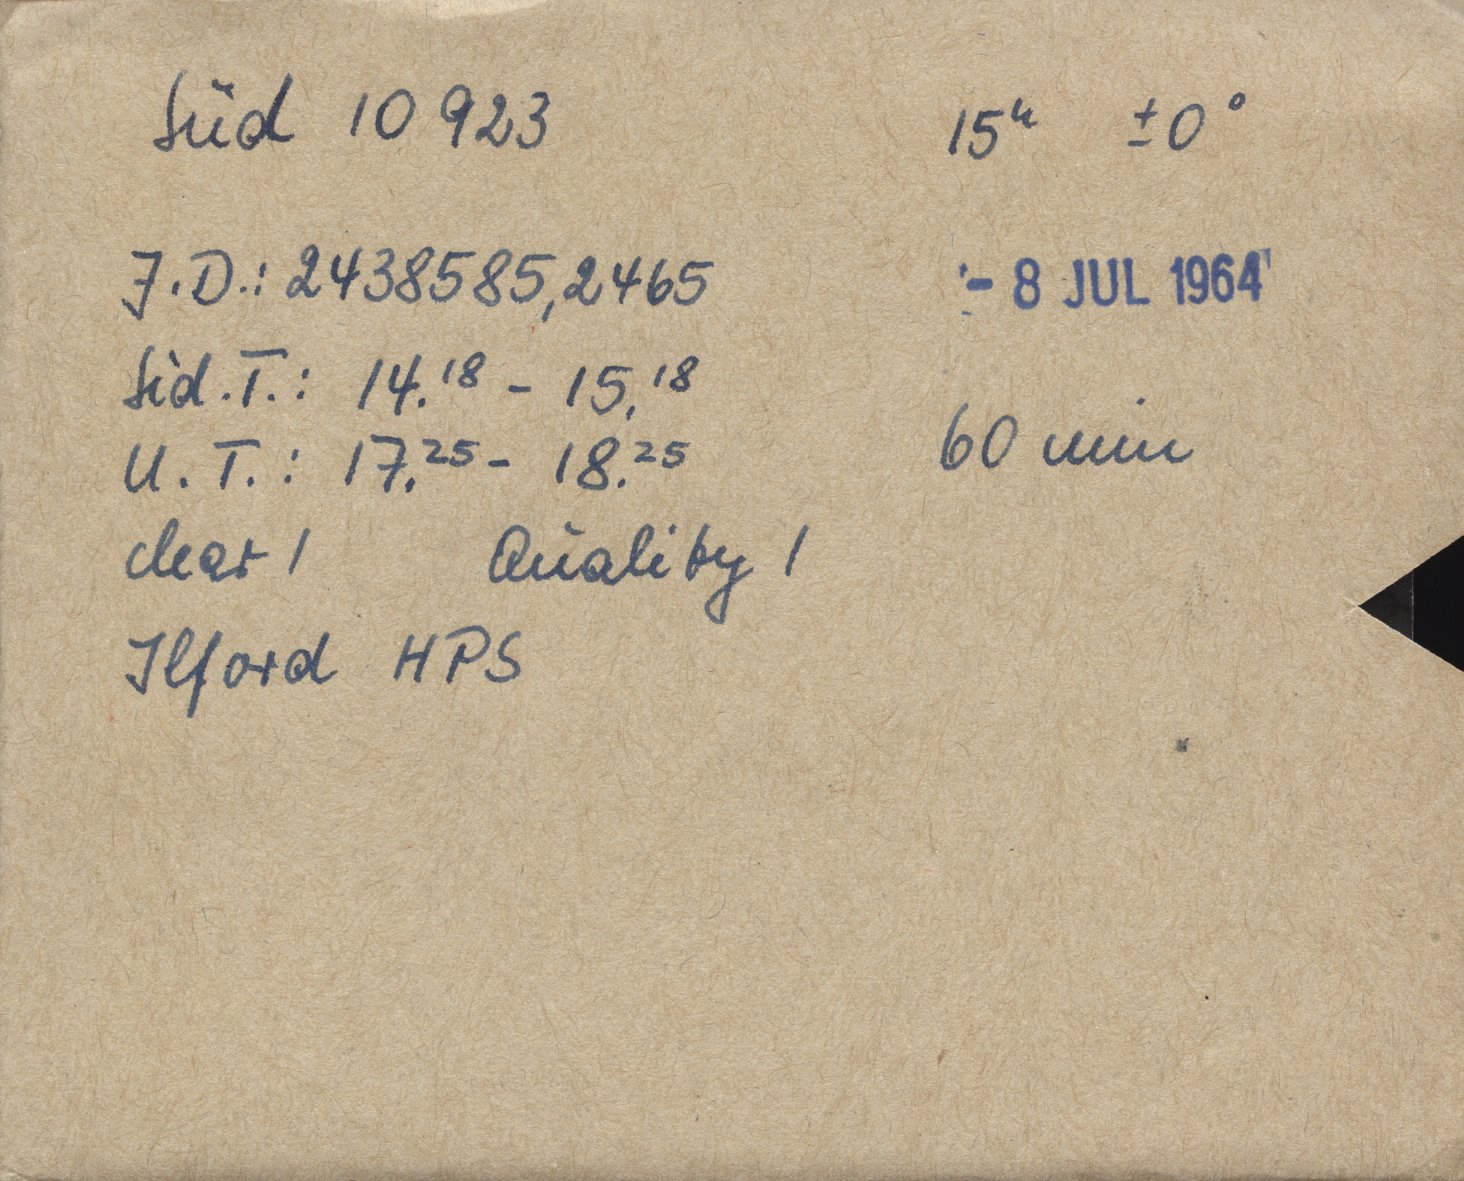 Süd 10 923 15ʰ ±0°
J.D.: 2438585,2465 - 8 JUL 1964
Sid.T.: 14.¹⁸ - 15.¹⁸
U.T.: 17.²⁵ - 18.²⁵ 60 min
clear 1 Quality 1
Ilford HPS